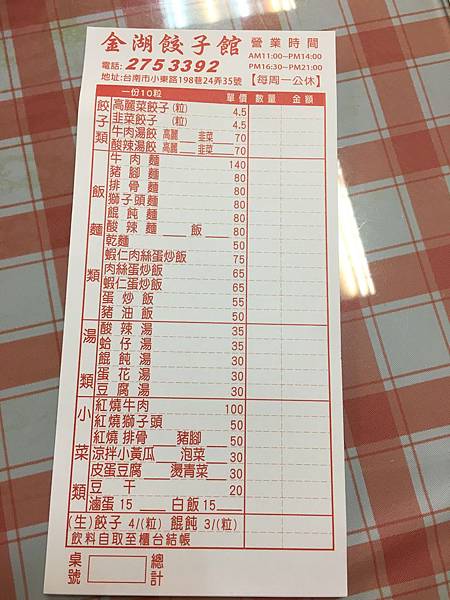 金湖餃子館 營業時間
電話: 2753392 AM11:00~PM14:00
PM16:30~PM21:00
地址:台南市小東路198巷24弄35號 【每周一公休】
一份10粒 單價 數量 金額
餃子類
高麗菜餃子(粒) 4.5
韭菜餃子(粒) 4.5
牛肉湯餃 高麗__韭菜__ 70
酸辣湯餃 高麗__韭菜__ 70
飯麵類
牛肉麵 140
豬腳麵 80
排骨麵 80
獅子頭麵 80
餛飩麵 80
酸辣麵____飯____ 80
乾麵 50
蝦仁肉絲蛋炒飯 75
肉絲蛋炒飯 65
蝦仁蛋炒飯 65
蛋炒飯 55
豬油飯 50
湯類
酸辣湯 35
蛤仔湯 35
餛飩湯 30
蛋花湯 30
豆腐湯 30
小菜類
紅燒牛肉 100
紅燒獅子頭 50
紅燒排骨____豬腳____ 50
涼拌小黃瓜____泡菜____ 30
皮蛋豆腐____燙青菜____ 30
豆干 20
滷蛋 15____白飯 15____
(生)餃子 4/(粒) 餛飩 3/(粒)
飲料自取至櫃台結帳
桌號 總計